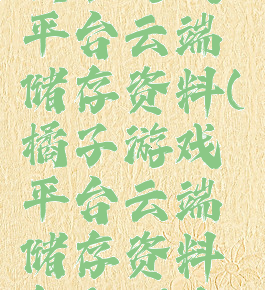 平台云端
储存资料(
橘子游戏
平台云端
储存资料